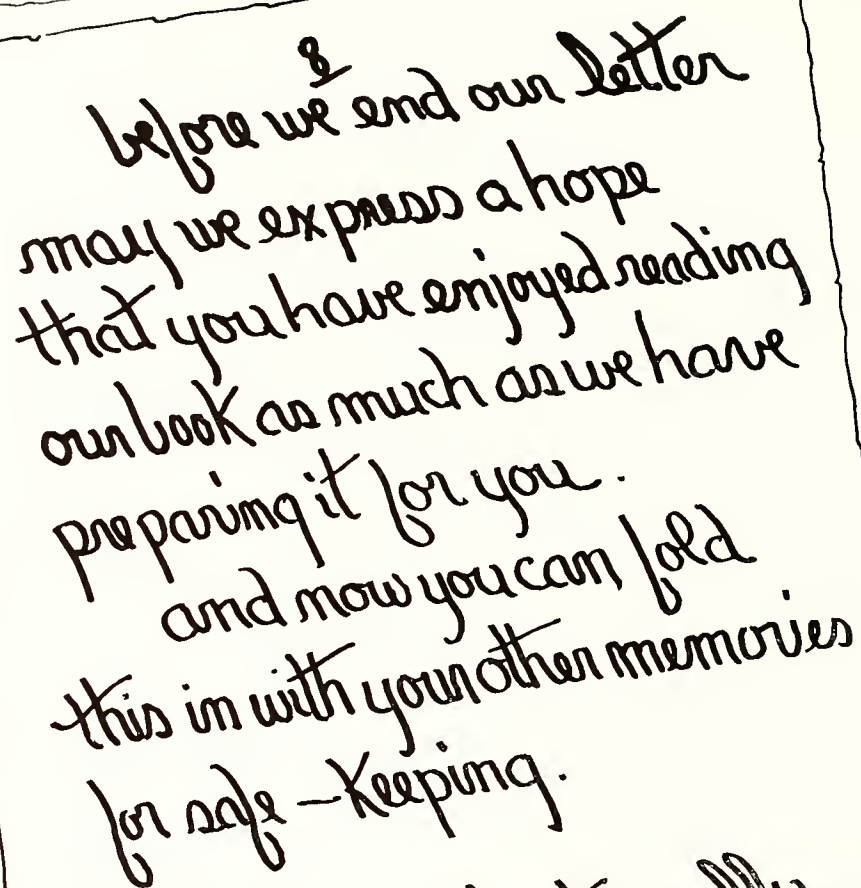 8
before we end our letter
may we express a hope
that you have enjoyed reading
our book as much as we have
preparing it for you.
and now you can fold
this in with your other memories
for safe-keeping.